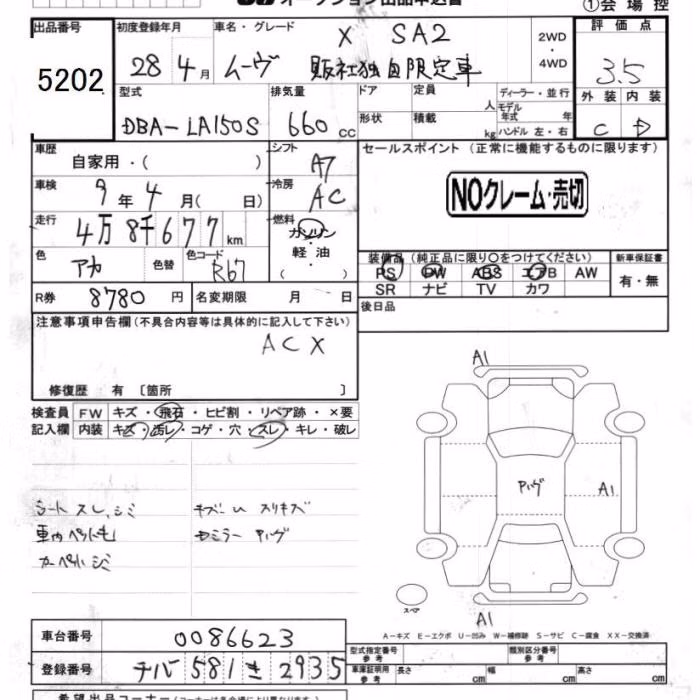 オークション出品申込書
①会場控
出品番号
5202
初度登録年月
28 年 4 月
車名・グレード
X SA2
ムーヴ 販社独自限定車
2WD
・
4WD
評価点
3.5
外装 内装
C D
型式
DBA-LA150S
排気量
660 cc
ドア
定員
人
形状
積載
kg
ディーラー・並行
モデル年式 年
ハンドル 左・右
車歴
自家用・( )
シフト
A7
車検
9 年 4 月( 日)
冷房
AC
走行
4万8千677 km
燃料
ガソリン
軽油
( )
色
アカ
色替
色コード
R67
R券
8780 円
名変期限
月 日
セールスポイント (正常に機能するものに限ります)
NOクレーム・売切
装備品 (純正品に限り○をつけてください)
PS PW ABS エアB AW
SR ナビ TV カワ
新車保証書
有・無
後日品
注意事項申告欄(不具合内容等は具体的に記入して下さい)
ACX
修復歴 有 〔箇所 〕
検査員記入欄
FW キズ・飛石・ヒビ割・リペア跡・×要
内装 キズ・汚レ・コゲ・穴・スレ・キレ・破レ
シート スレ、シミ
車内ペット毛
カーペット シミ
キズ U スリキズ
ミラー ハゲ
A1
ハゲ
A1
スペア
A1
A-キズ E-エクボ U-凹み W-補修跡 S-サビ C-腐食 XX-交換済
車台番号
0086623
登録番号
チバ 581 き 2935
型式指定番号 参考
類別区分番号 参考
車庫証明用 参考
長さ cm
幅 cm
高さ cm
希望出品コーナー